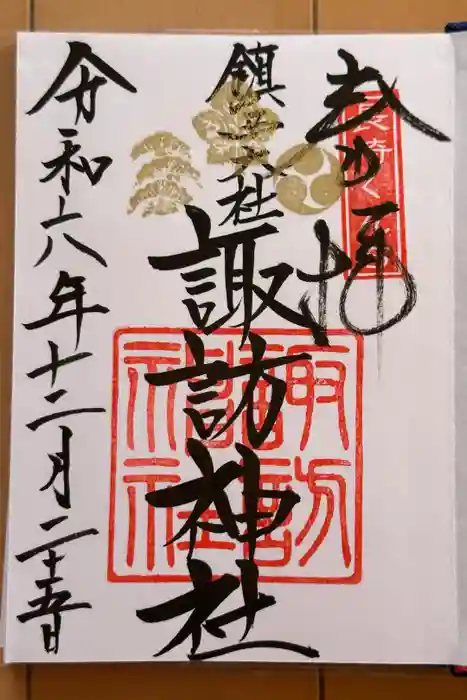 拝
長崎く
鎮西大社
諏訪神社
諏訪
神社
令和六年十二月二十五日